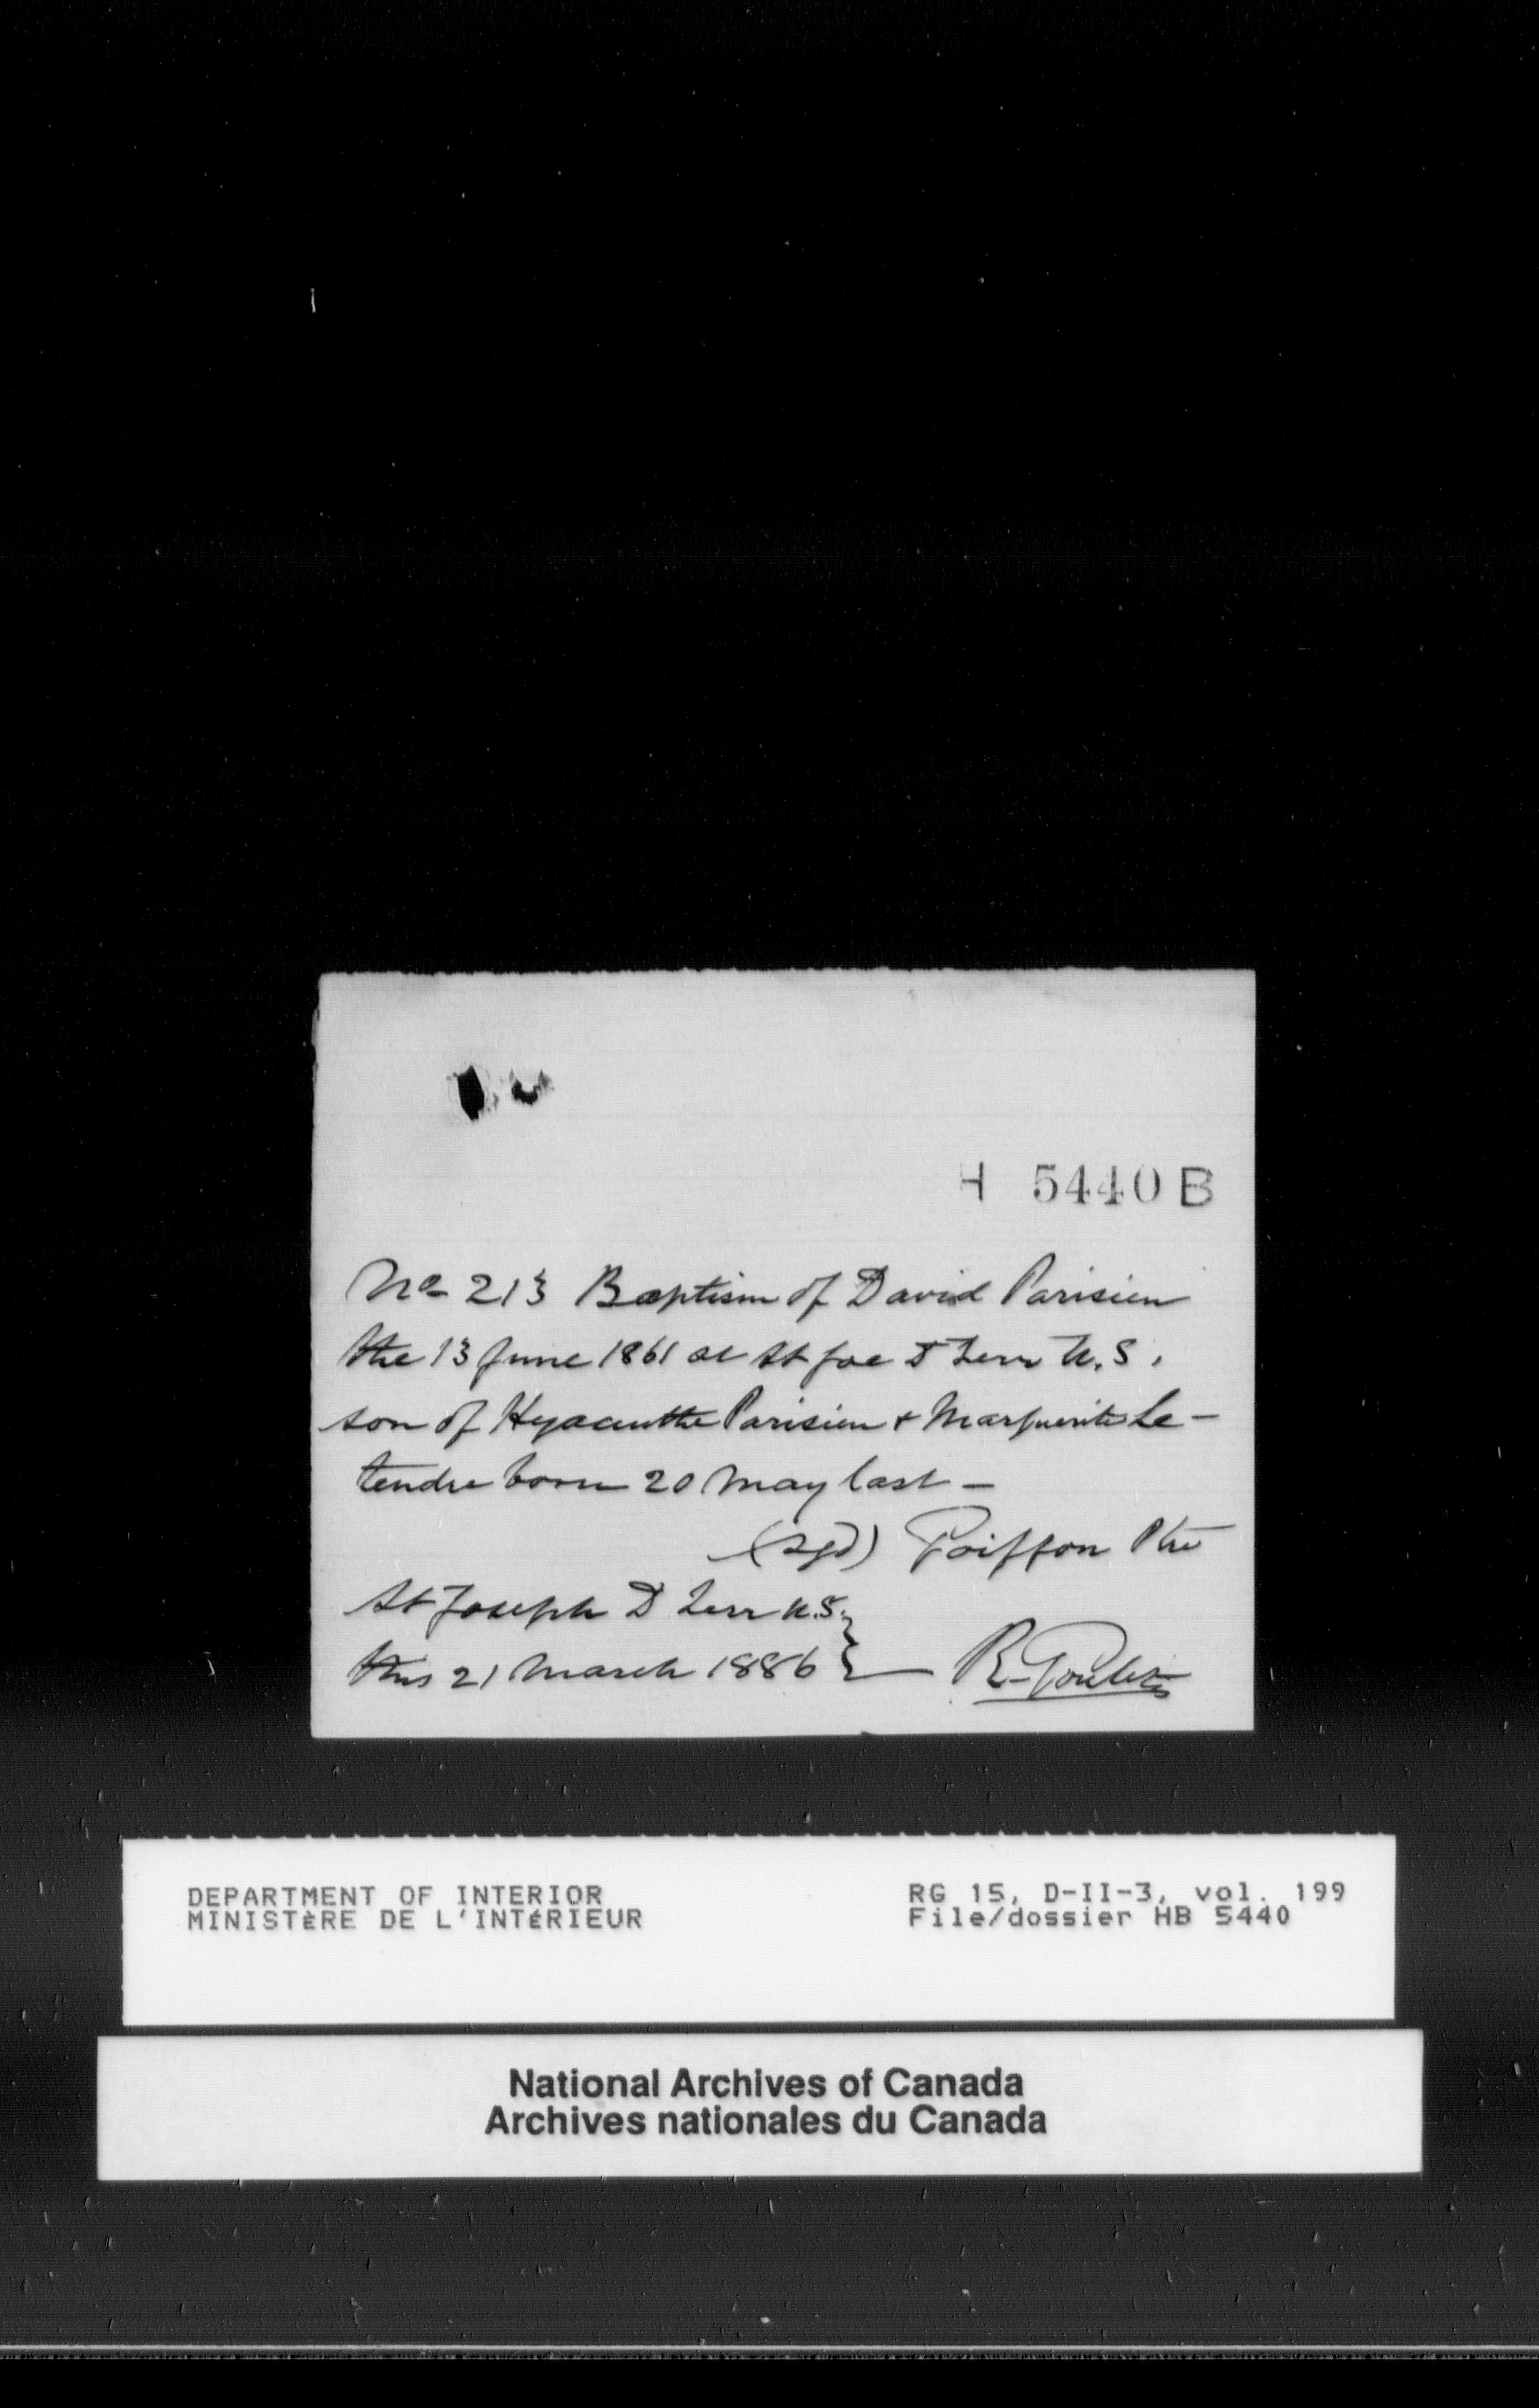 H 5440 B
No 213 Baptism of David Parisien
the 13 June 1861 at St Joe D Terr U.S.
son of Hyacinthe Parisien & Marguerite Le-
tendre born 20 May last -
(sgd) Goiffon Ptre
St Joseph D Terr U.S.
this 21 March 1886 R. Goulet
DEPARTMENT OF INTERIOR
MINISTÈRE DE L'INTÉRIEUR
RG 15, D-II-3, vol. 199
File/dossier HB 5440
National Archives of Canada
Archives nationales du Canada